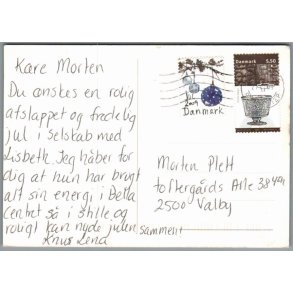 Kare Morten
Du ønskes en rolig
afslappet og fredelig
jul i selskab med
Lisbeth. Jeg håber for
dig at hun har brugt
alt sin energi i Bella
centret så i stille og
roligt kan nyde julen sammen!
Knus Lena
Danmark
Danmark 5.50
Morten Plett
toftegårds Alle
2500 Valby